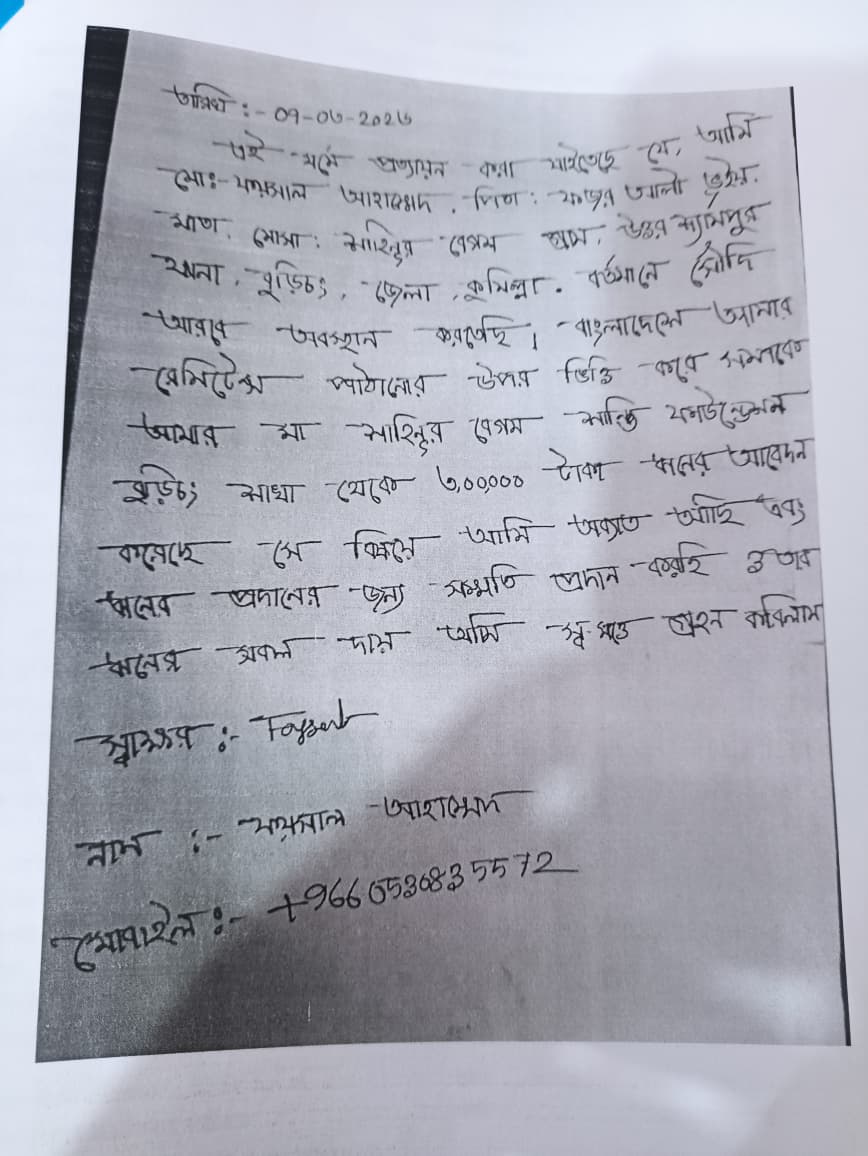 তারিখ :- 09-০৬-২০২৬
এই মর্মে প্রত্যায়ন করা যাইতেছে যে, আমি
মোঃ- ফয়সাল আহাম্মেদ, পিতা: ফজর আলী ভূইয়া.
মাতা, মোসা: শাহিনুর বেগম গ্রাম, উত্তর শ্যামপুর
থানা, বুড়িচং, জেলা, কুমিল্লা. বর্তমানে সৌদি
আরবে অবস্থান করতেছি। বাংলাদেশে আমার
রেমিটেন্স পাঠানোর উপর ভিত্তি করে
আমার মা শাহিনুর বেগম শান্তি ফাউন্ডেশন
বুড়িচং শাখা থেকে ৩,০০,০০০ টাকা ঋনের আবেদন
করেছে সে বিষয়ে আমি অবগত আছি এবং
ঋনের প্রদানের জন্য সম্মতি প্রদান করছি ও তার
ঋনের সকল দায় আমি স্ব-মতে গ্রহন করিলাম
স্বাক্ষর :- Foysal
নাম :- ফয়সাল আহাম্মেদ
মোবাইল :- +966 0536835572